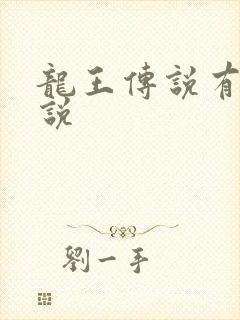 龍王傳說有
說
劉一手